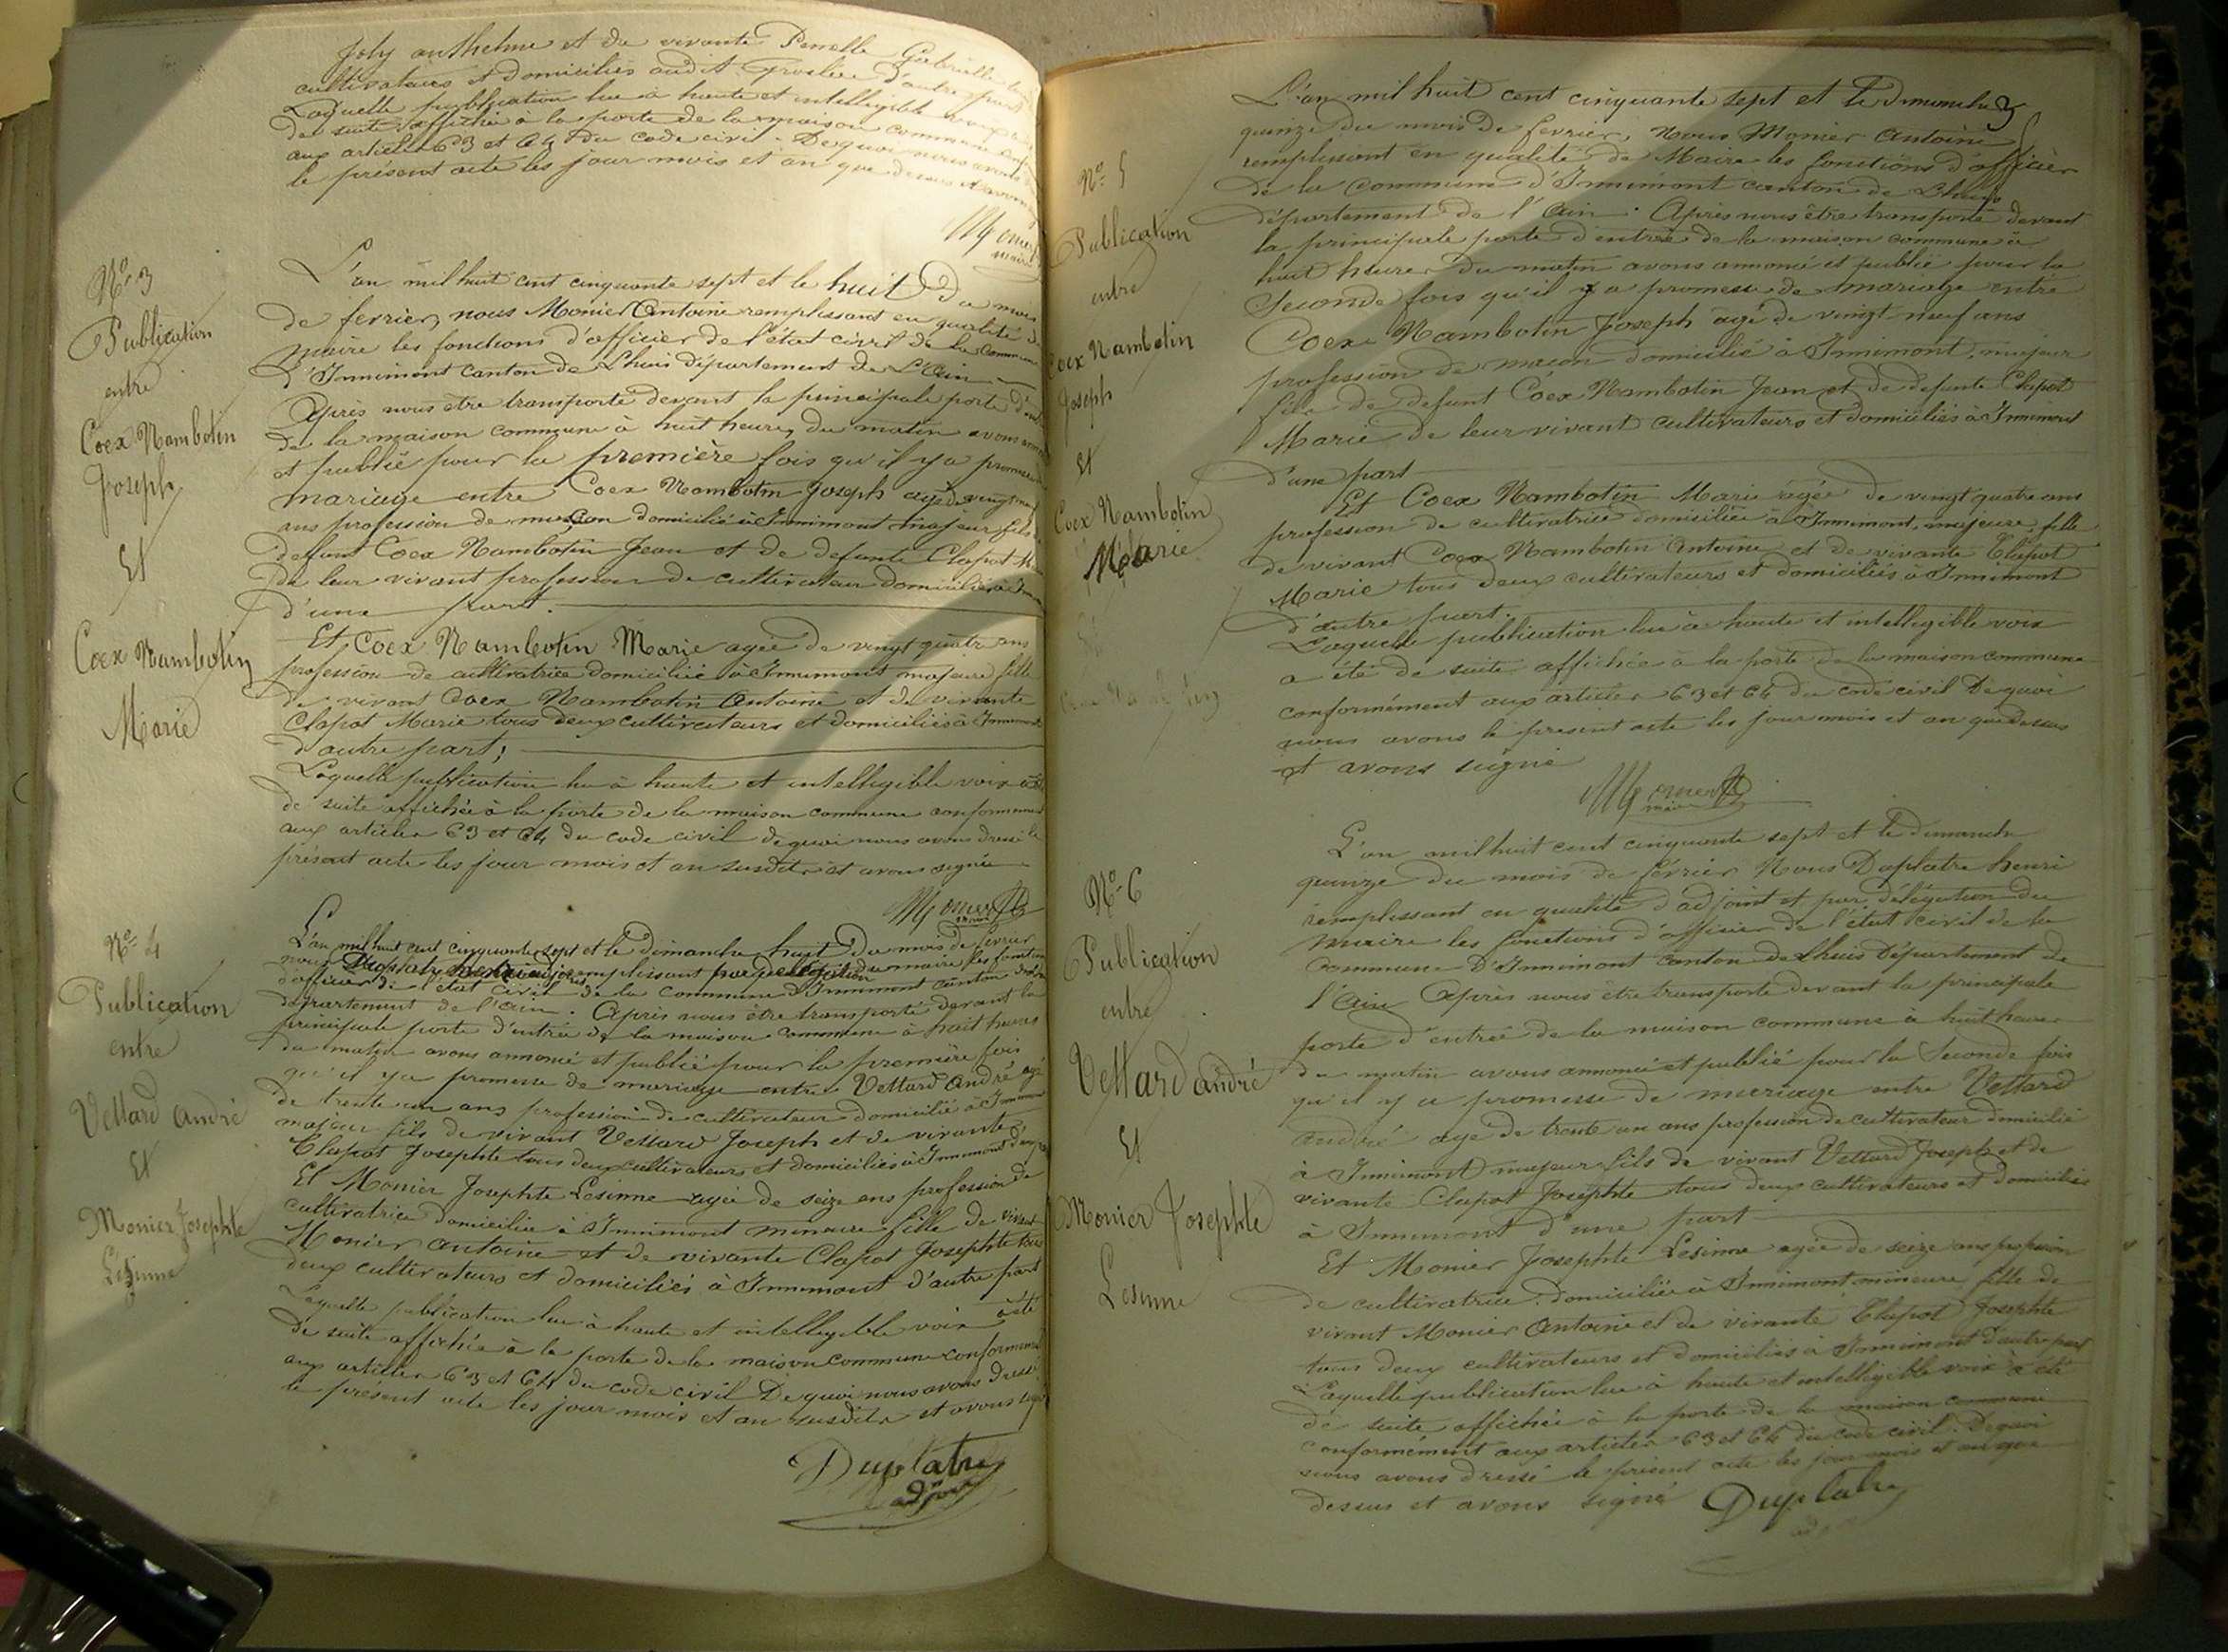 Joly anthelme et de vivante Perrelle Gabrielle
cultivateurs et domiciliés audit Groslée d'autre part
Laquelle publication lue à haute et intelligible
de suite affichée à la porte de la maison commune
aux articles 63 et 64 du code civil. Dequoi nous avons
le présent acte les jour mois et an que dessus et avons
Monier
maire
N° 3
Publication
entre
Coex Nambotin
Joseph
Et
Coex Nambotin
Marie
L'an mil huit cent cinquante sept et le huit Du mois
de ferrier, nous Monier Antoine remplissant en qualité de
maire les fonctions d'officier de l'état civil de la commune
D'Innimont canton de Lhuis Département de L'Ain
Après nous etre transporté devant la principale porte
de la maison commune à huit heures du matin avons
et publié pour la première fois qu'il y a promesse
mariage entre Coex Nambotin Joseph agé de vingt neuf
ans profession de maçon domicilié à Innimont majeur fils
defunt Coex Nambotin Jean et de defunte Clapot
de leur vivant profession de cultivateur domiciliés à
d'une part.
Et Coex Nambotin Marie agée de vingt quatre ans
profession de cultivatrice domiciliée à Innimont majeure fille
de vivant Coex Nambotin Antoine et de vivante
Clapot Marie tous deux cultivateurs et domiciliés à Innimont
d'autre part;
Laquelle publication lue à haute et intelligible voix a été
de suite affichée à la porte de la maison commune conformement
aux articles 63 et 64 du code civil dequoi nous avons dressé le
présent acte les jour mois et an susdits et avons signé
Monier
maire
N° 4
Publication
entre
Vettard André
Et
Monier Josephte
Lésinne
L'an mil huit cent cinquante sept et le dimanche huit Du mois de fevrier
nous Duplatre henri adjoint remplissant par délégation du maire les fonctions
d'officier de l'état civil de la commune D'Innimont canton
département de l'ain. Après nous être transporté devant la
principale porte d'entrée de la maison commune à huit heures
du matin avons annoncé et publié pour la première fois
qu'il y a promesse de mariage entre Vettard André agé
de trente un ans profession de cultivateur domicilié à Innimont
majeur fils de vivant Vettard Joseph et de vivante
Clapot Josephte tous deux cultivateurs et domiciliés à Innimont
Et Monier Josephte Lesinne agée de seize ans profession de
cultivatrice domiciliée à Innimont mineure fille de vivant
Monier Antoine et de vivante Clapot Josephte tous
deux cultivateurs et domiciliés à Innimont d'autre part
Laquelle publication lue à haute et intelligible voix a été
de suite affichée à la porte de la maison commune conformement
aux articles 63 et 64 du code civil De quoi nous avons dressé
le présent acte les jour mois et an susdits et avons signé
Duplatre
adjoint
N° 5
Publication
entre
Coex Nambotin
Joseph
Et
Coex Nambotin
Marie
L'an mil huit cent cinquante sept et le Dimanche
quinze du mois de fevrier, Nous Monier Antoine
remplissant en qualité de Maire les fonctions d'officier
de la commune d'Innimont canton de Lhuis
département de l'Ain. Après nous être transporté devant
la principale porte d'entrée de la maison commune à
huit heures du matin avons annoncé et publié pour la
Seconde fois qu'il y a promesse de mariage entre
Coex Nambotin Joseph agé de vingt neuf ans
profession de maçon domicilié à Innimont, majeur
fils de defunt Coex Nambotin Jean et de defunte Clapot
Marie de leur vivant cultivateurs et domiciliés à Innimont
d'une part
Et Coex Nambotin Marie agée de vingt quatre ans
profession de cultivatrice domiciliée à Innimont, majeure, fille
de vivant Coex Nambotin Antoine et de vivante Clapot
Marie tous deux cultivateurs et domiciliés à Innimont
d'autre part.
Laquelle publication lue à haute et intelligible voix
a été de suite affichée à la porte de la maison commune
conformément aux articles 63 et 64 du code civil Dequoi
nous avons le présent acte les jour mois et an que dessus
et avons signé
Monier
maire
N° 6
Publication
entre
Vettard andré
Et
Monier Josephte
Lesinne
L'an mil huit cent cinquante sept et le dimanche
quinze du mois de février Nous Duplatre henri
remplissant en qualité d'adjoint et par délégation du
maire les fonctions d'officier de l'état civil de la
Commune D'Innimont canton de Lhuis Département de
l'Ain Après nous être transporté devant la principale
porte d'entrée de la maison commune à huit heures
du matin avons annoncé et publié pour la Seconde fois
qu'il y a promesse de mariage entre Vettard
André agé de trente un ans profession de cultivateur domicilié
à Innimont majeur fils de vivant Vettard Joseph et de
vivante Clapot Josephte tous deux cultivateurs et domiciliés
à Innimont d'une part
Et Monier Josephte Lesinne agée de seize ans profession
de cultivatrice domiciliée à Innimont mineure fille de
vivant Monier Antoine et de vivante Clapot Josephte
tous deux cultivateurs et domiciliés à Innimont d'autre part
Laquelle publication lue à haute et intelligible voix a été
de suite affichée à la porte de la maison commune
conformément aux articles 63 et 64 du code civil. De quoi
nous avons dressé le présent acte les jour mois et an que
dessus et avons signé Duplatre